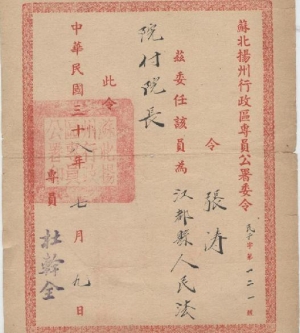 蘇北揚州行政區專員公署委令
民字第一二一號
令
張涛
茲委任該員為江都縣人民法
院付院長
此令
專員
杜幹全
中華民國三十八年七月九日